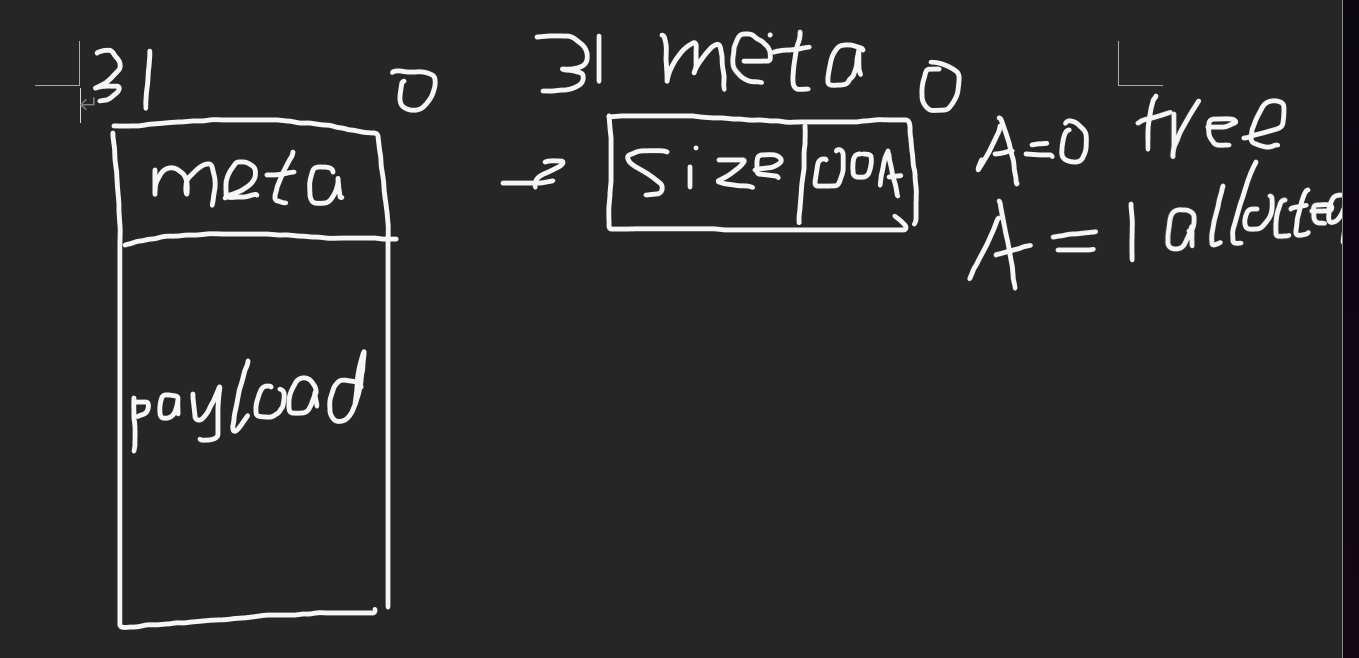 31 0
meta
payload
31 meta 0
→ Size 00A
A=0 tree
A=1 allocted